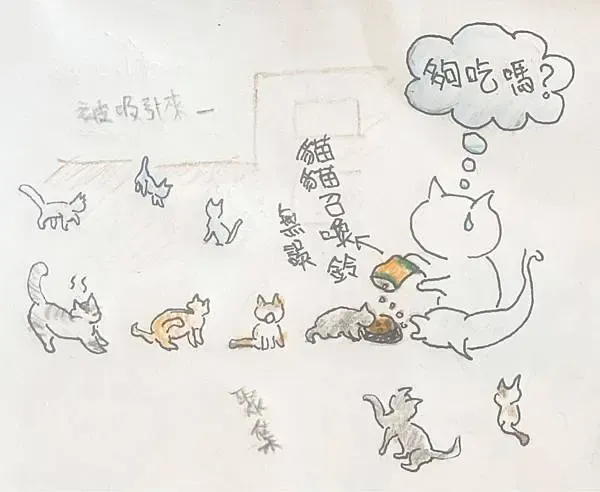 夠吃嗎?
被吸引來—
貓貓召喚鈴
無誤
聚集